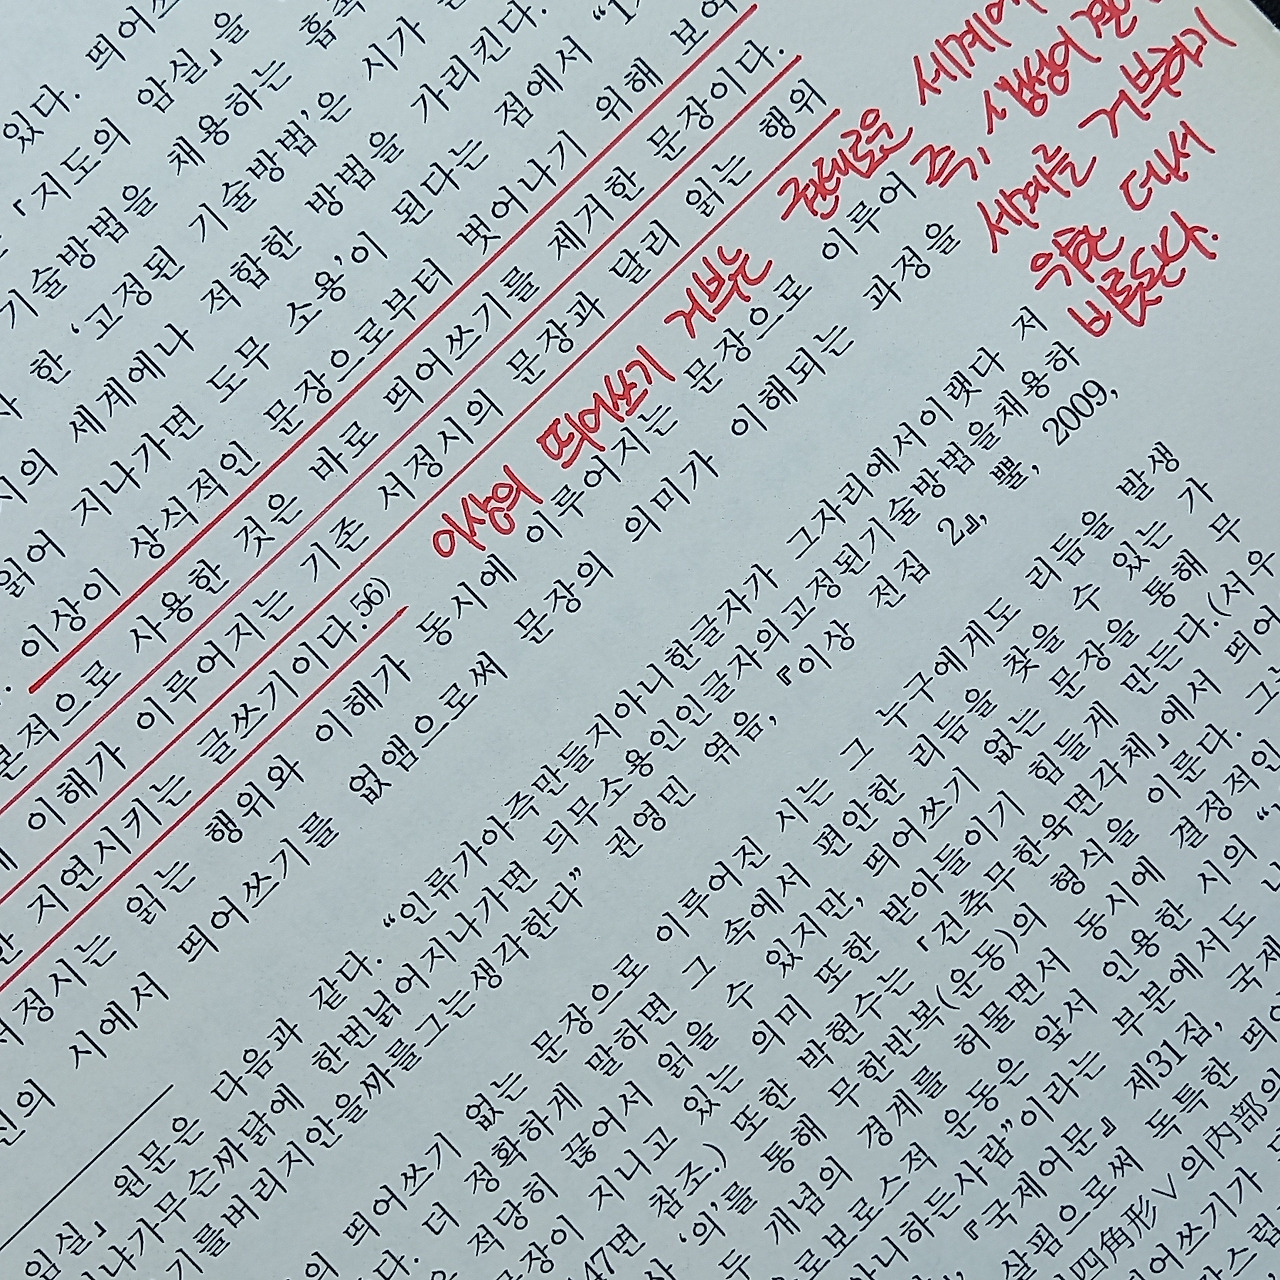 있다. 띄어쓰
『지도의 암실』을
기술방법을 채용하는 흡
한 '고정된 기술방법'은 시가
시의 세계에나 적합한 방법을 가리킨다.
읽어 지나가면 도무 소용'이 된다는 점에서 "1
이상이 상식적인 문장으로부터 벗어나기 위해 보여
본적으로 사용한 것은 바로 띄어쓰기를 제거한 문장이다.
이해가 이루어지는 기존 서정시의 문장과 달리 읽는 행위
지연시키는 글쓰기이다.56)
서정시는 읽는 행위와 이해가 동시에 이루어지는 문장으로 이루어
시에서 띄어쓰기를 없앰으로써 문장의 의미가 이해되는 과정을
이상의 띄어쓰기 거부는 세계에
즉, 생성이
세계를 거부하기
위한 데서
비롯된다.
암실』 원문은 다음과 같다. "인류가아즉만들지아니한글자가 그자리에서이랫다 저
냐가무슨싸닭에 한번넑어지나가면 듸무소용인인글자의고정된기술방법을채용하
기를버리지안을싸를그는생각한다" 권영민 엮음, 『이상 전집 2』, 뿔, 2009,
띄어쓰기 없는 문장으로 이루어진 시는 그 누구에게도 리듬을 발생
더 정확하게 말하면 그 속에서 편안한 리듬을 찾을 수 있는 가
적당히 끊어서 읽을 수 있지만, 띄어쓰기 없는 문장을 통해 무
문장이 지니고 있는 의미 또한 받아들이기 힘들게 만든다.(서우
47면 참조.) 또한 박현수는 「건축무한육면각체」에서 띄어
'의'를 통해 무한반복(운동)의 형식을 이룬다. 그
두 개념의 경계를 허물면서 동시에 결정적인
로보로스적 운동은 앞서 인용한 시의 "
아니하든사람"이라는 부분에서도 나
『국제어문』 제31집, 국제
살핌으로써 독특한 띄어
四角形∨의內部의